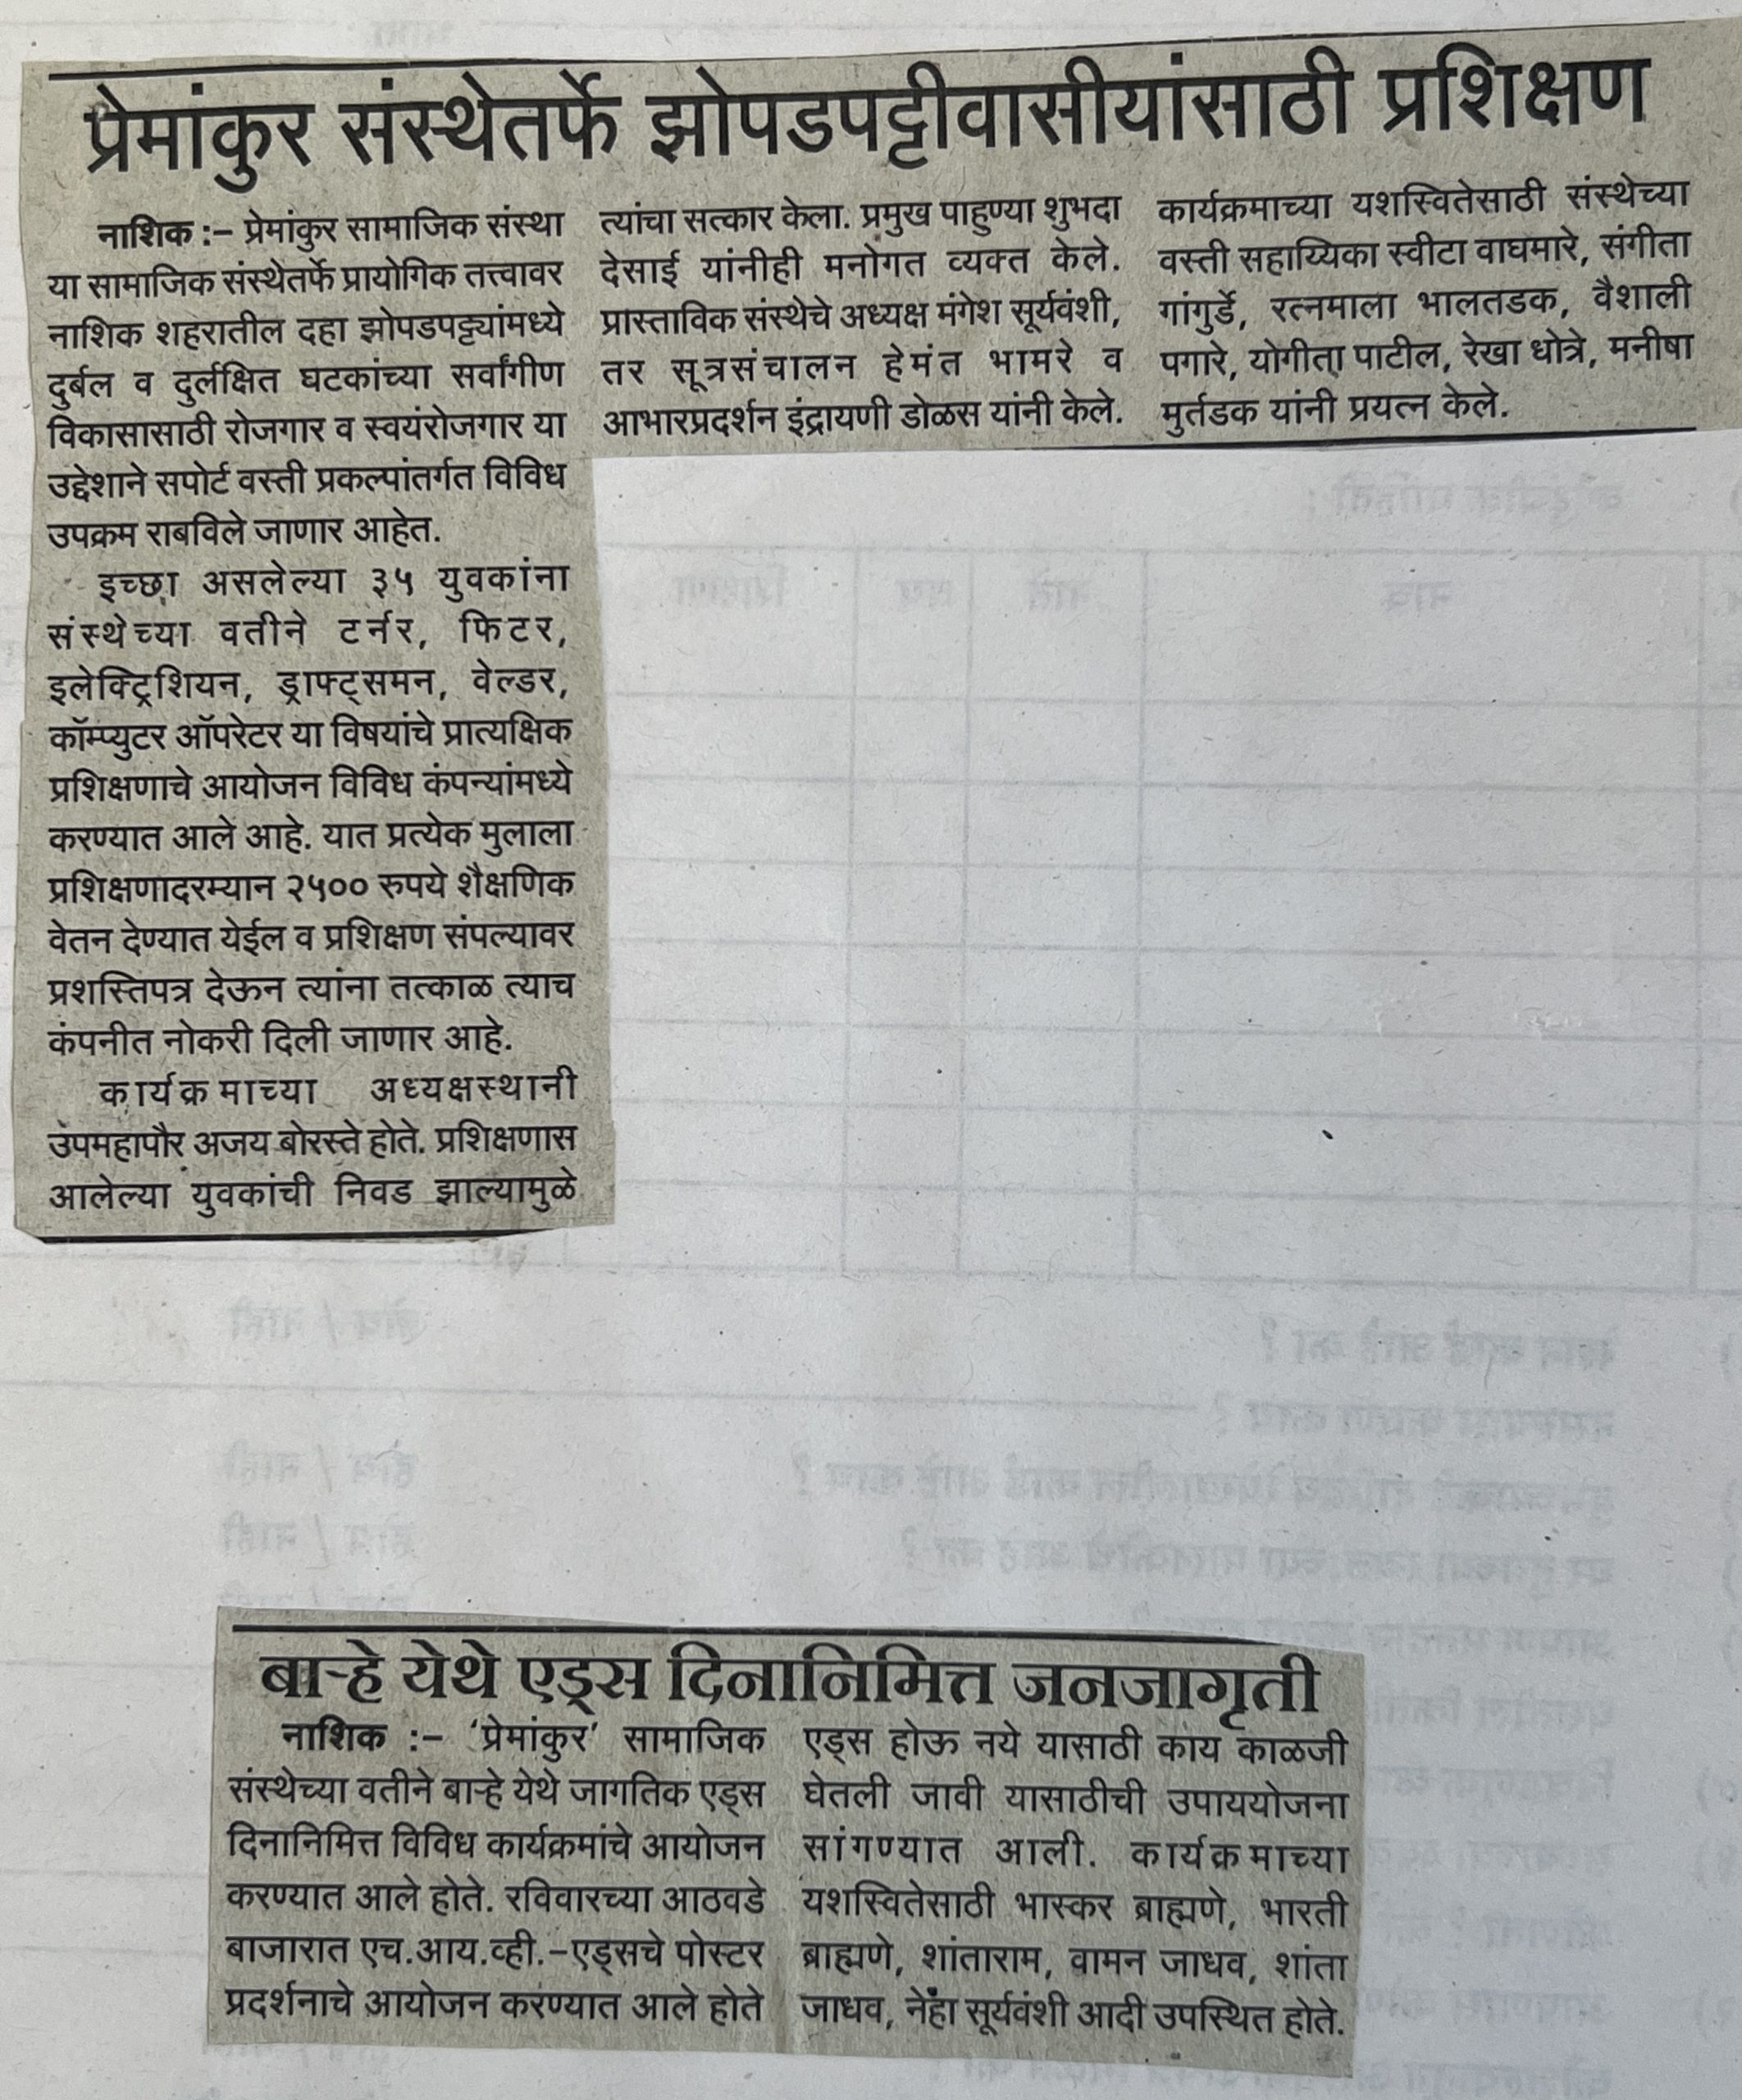 प्रेमांकुर संस्थेतर्फे झोपडपट्टीवासीयांसाठी प्रशिक्षण
नाशिक :– प्रेमांकुर सामाजिक संस्था
या सामाजिक संस्थेतर्फे प्रायोगिक तत्त्वावर
नाशिक शहरातील दहा झोपडपट्ट्यांमध्ये
दुर्बल व दुर्लक्षित घटकांच्या सर्वांगीण
विकासासाठी रोजगार व स्वयंरोजगार या
उद्देशाने सपोर्ट वस्ती प्रकल्पांतर्गत विविध
उपक्रम राबविले जाणार आहेत.
इच्छा असलेल्या ३५ युवकांना
संस्थेच्या वतीने टर्नर, फिटर,
इलेक्ट्रिशियन, ड्राफ्ट्समन, वेल्डर,
कॉम्प्युटर ऑपरेटर या विषयांचे प्रात्यक्षिक
प्रशिक्षणाचे आयोजन विविध कंपन्यांमध्ये
करण्यात आले आहे. यात प्रत्येक मुलाला
प्रशिक्षणादरम्यान २५०० रुपये शैक्षणिक
वेतन देण्यात येईल व प्रशिक्षण संपल्यावर
प्रशस्तिपत्र देऊन त्यांना तत्काळ त्याच
कंपनीत नोकरी दिली जाणार आहे.
कार्यक्रमाच्या अध्यक्षस्थानी
उपमहापौर अजय बोरस्ते होते. प्रशिक्षणास
आलेल्या युवकांची निवड झाल्यामुळे
त्यांचा सत्कार केला. प्रमुख पाहुण्या शुभदा
देसाई यांनीही मनोगत व्यक्त केले.
प्रास्ताविक संस्थेचे अध्यक्ष मंगेश सूर्यवंशी,
तर सूत्रसंचालन हेमंत भामरे व
आभारप्रदर्शन इंद्रायणी डोळस यांनी केले.
कार्यक्रमाच्या यशस्वितेसाठी संस्थेच्या
वस्ती सहाय्यिका स्वीटा वाघमारे, संगीता
गांगुर्डे, रत्नमाला भालतडक, वैशाली
पगारे, योगीता पाटील, रेखा धोत्रे, मनीषा
मुर्तडक यांनी प्रयत्न केले.
बाऱ्हे येथे एड्स दिनानिमित्त जनजागृती
नाशिक :– ‘प्रेमांकुर’ सामाजिक
संस्थेच्या वतीने बाऱ्हे येथे जागतिक एड्स
दिनानिमित्त विविध कार्यक्रमांचे आयोजन
करण्यात आले होते. रविवारच्या आठवडे
बाजारात एच.आय.व्ही.–एड्सचे पोस्टर
प्रदर्शनाचे आयोजन करण्यात आले होते
एड्स होऊ नये यासाठी काय काळजी
घेतली जावी यासाठीची उपाययोजना
सांगण्यात आली. कार्यक्रमाच्या
यशस्वितेसाठी भास्कर ब्राह्मणे, भारती
ब्राह्मणे, शांताराम, वामन जाधव, शांता
जाधव, नेहा सूर्यवंशी आदी उपस्थित होते.